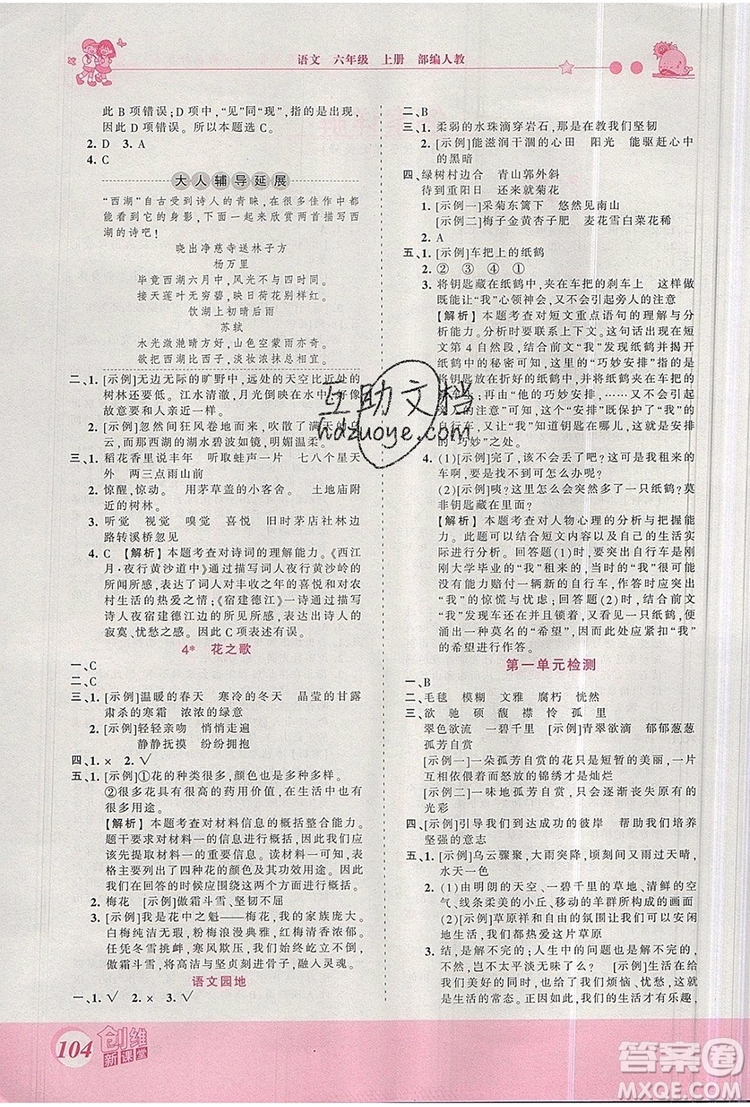 语文 六年级 上册 部编人教
此 B 项错误；D 项中，“见”同“现”，指的是出现，
因此 D 项错误。所以本题选 C。
2. D 3. A
4. C
大人辅导延展
“西湖”自古受到诗人的青睐，在很多佳作中都
能看到它的身影，下面一起来欣赏两首描写西
湖的诗吧！
晓出净慈寺送林子方
杨万里
毕竟西湖六月中，风光不与四时同。
接天莲叶无穷碧，映日荷花别样红。
饮湖上初晴后雨
苏轼
水光潋滟晴方好，山色空蒙雨亦奇。
欲把西湖比西子，淡妆浓抹总相宜。
二、1. [示例]无边无际的旷野中，远处的天空比近处的
树林还要低。江水清澈，月光倒映在水中，好像
故意要和人亲近一样。
2. [示例]忽然间狂风卷地而来，吹散了满天的乌
云，而西湖的湖水碧波如镜，明媚温柔。
三、1. 稻花香里说丰年 听取蛙声一片 七八个星天
外 两三点雨山前
2. 惊醒，惊动。 用茅草盖的小客舍。 土地庙附近
的树林。
3. 听觉 视觉 嗅觉 喜悦 旧时茅店社林边，
路转溪桥忽见
4. C [解析]本题考查对诗词的理解能力。《西江
月·夜行黄沙道中》通过描写词人夜行黄沙岭
的所闻所感，表达了词人对丰收之年的喜悦和对农
村生活的热爱之情；《宿建德江》一诗则通过描写
诗人夜宿建德江边的所见所感，表达了诗人的
寂寞、忧愁之感。因此 C 项表述有误。
4* 花之歌
一、C
二、C
三、1. [示例]温暖的春天 寒冷的冬天 晶莹的甘露
肃杀的寒霜 浓浓的绿意
2. [示例]轻轻亲吻 悄悄走遍
静静抚摸 纷纷拥抱
四、1. × 2. √
五、1. [示例]①花的种类很多，但具有共同的特征。
②很多花具有很高的药用价值，在生活中也有
很多用途。
[解析]本题考查对材料信息的概括整合能力。
题干要求对材料一的信息进行概括，因此我们
要提取材料一的信息。这则材料以文字加
表格的方式向我们介绍了四种花的特征，我们
在回答的时候应概括这些内容。
2. 梅花 [示例]傲霜斗雪 坚强不屈
3. [示例]我是花中之魁——梅花，我的家族庞大。
白梅纯洁无瑕，粉梅浪漫典雅，红梅富贵浓烈。
任凭冬雪挑衅，寒风欺压，我们都傲然屹立。
高洁与坚贞就是我的品性，傲霜斗雪，坚强不
屈就是我的精神！
语文园地
一、1. √ 2. × 3. √
二、B
三、1. 柔弱的水珠滴穿岩石，那是在教我们坚韧
2. [示例]能滋润干涸的心田 阳光 能驱赶心中
的黑暗
四、1. 绿树村边合 青山郭外斜
待到重阳日 还来就菊花
2. (1)[示例]采菊东篱下 悠然见南山
(2)[示例]梅子金黄杏子肥 麦花雪白菜花稀
3. A
五、1. [示例]车把上的纸鹤
2. ② ③ ④ ①
3. 将钥匙藏在纸鹤中，并夹在车把的刹车上。 这样做
既能让“我”心领神会，又不会引起旁人的注意。
[解析]本题考查对短文重点语句的理解与分
析能力。分析时要联系上下文。这句话出现在
短文第 4 自然段，
4. (1)[示例]完了，怎么办？这可是我租来的
车啊！
(2)[示例]咦？怎么会有一只纸鹤在车把上？莫
非钥匙藏在了哪里？
[解析]本题考查对人物心理的分析与把握能
力。此题可以结合短文内容以及自己的生活实
际进行分析。
第一单元检测
一、B
二、毛毯 模糊 文雅 腐朽 恍然
三、欲 驰 硕 馥 襟 怜 孤 里
翠色欲流 一碧千里 [示例]青翠欲滴 郁郁葱葱
孤芳自赏
[示例一]一朵孤芳自赏的花只是短暂的美丽，一片
互相紧挨着怒放的锦绣才是灿烂
[示例二]一味地孤芳自赏，并不能展现自己的
光彩
四、[示例]引导我们到达成功的彼岸 帮助我们培养
坚强的意志
五、1. [示例]乌云骤聚，大雨突降，顷刻间又雨过天晴，
水天一色
2. (1)由明朗的天空、一碧千里的草地、清鲜的空
气、线条柔美的小丘、自由自在的羊群所构成的
(2)[示例]草原祥和自由的氛围让我们可以安闲
地生活，因此我会整个热爱这片草原
3. 结，是解不完的；人生中的问题也一样，是永远
解不完的。 [示例]生活中我们会遇到很多困
难，这些困难是无穷无尽的，但因为有困难，才
有克服困难的勇气，生活也因此才有更多乐趣，
互助文档
hdzuoye.com
104
创维
新课堂
答案圈
MXQE.COM